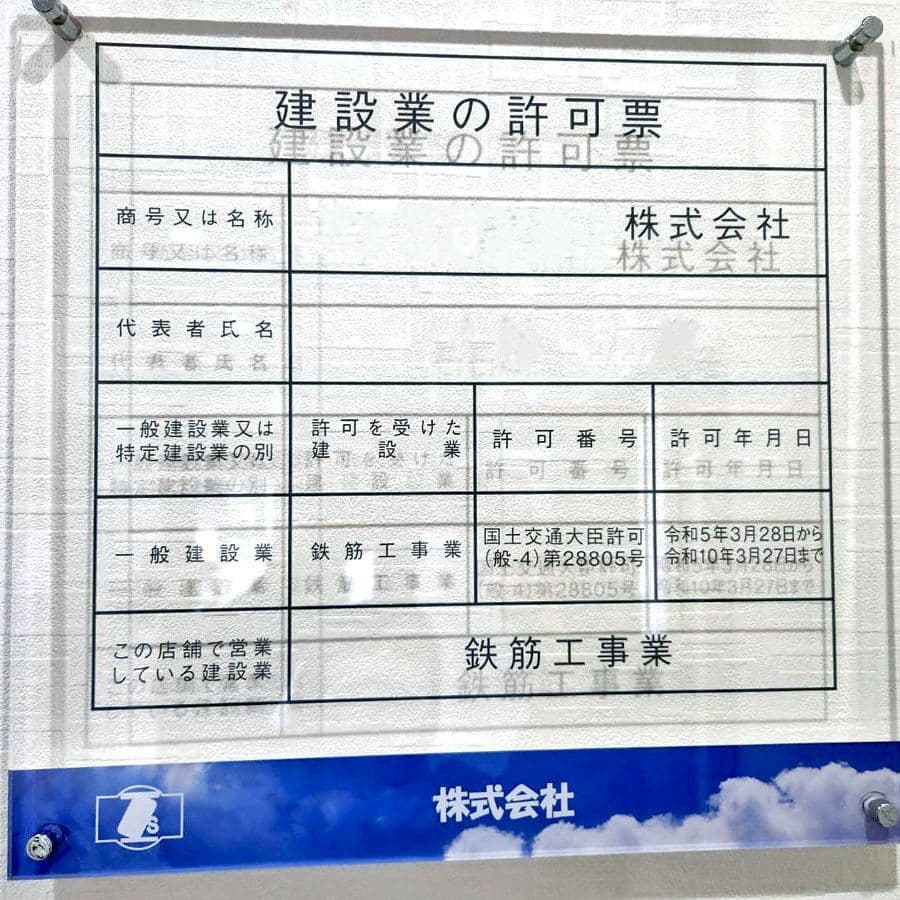 建設業の許可票
商号又は名称
株式会社
代表者氏名
一般建設業又は
特定建設業の別
許可を受けた
建設業
許可番号
許可年月日
一般建設業
鉄筋工事業
国土交通大臣許可
(般-4)第28805号
令和5年3月28日から
令和10年3月27日まで
この店舗で営業
している建設業
鉄筋工事業
株式会社
S